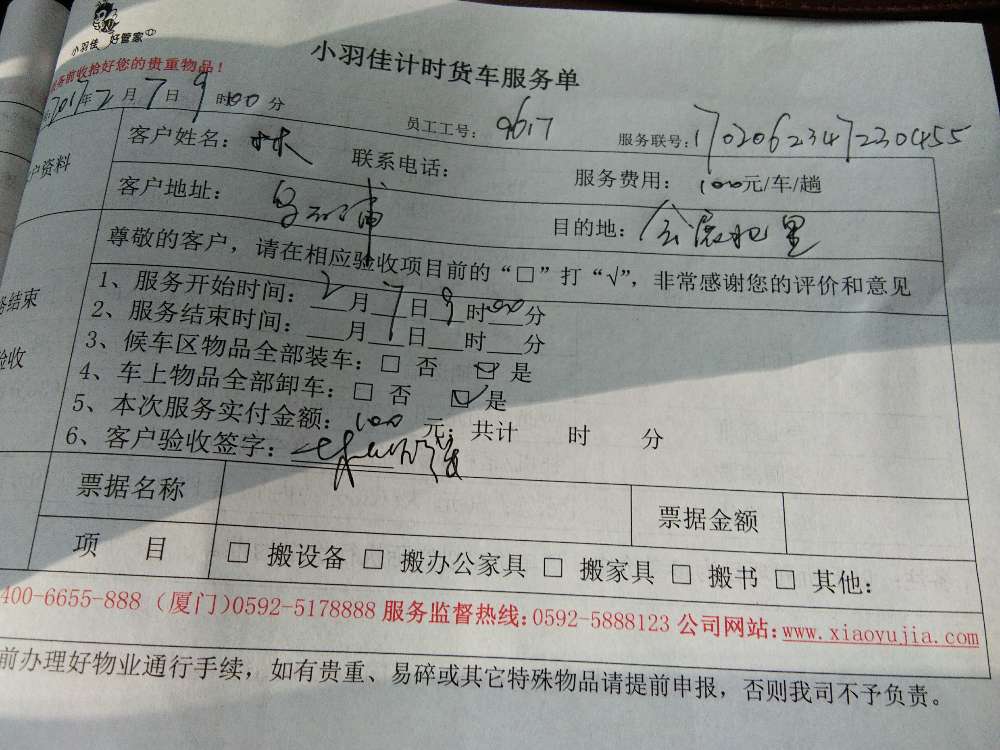 小羽佳 好管家
小羽佳计时货车服务单
务前收拾好您的贵重物品！
2017年2月7日9时00分
员工工号：9617
服务联号：1702062347230455
户资料
客户姓名：林
联系电话：
服务费用：100元/车/趟
客户地址：
目的地：
尊敬的客户，请在相应验收项目前的“□”打“√”，非常感谢您的评价和意见
务结束
验收
1、服务开始时间：2月7日9时00分
2、服务结束时间：___月___日___时___分
3、候车区物品全部装车：□ 否 ☑ 是
4、车上物品全部卸车：□ 否 ☑ 是
5、本次服务实付金额：100元；共计 时 分
6、客户验收签字：
票据名称
票据金额
项 目
□ 搬设备 □ 搬办公家具 □ 搬家具 □ 搬书 □ 其他：
400-6655-888（厦门）0592-5178888 服务监督热线：0592-5888123 公司网站：www.xiaoyujia.com
前办理好物业通行手续，如有贵重、易碎或其它特殊物品请提前申报，否则我司不予负责。